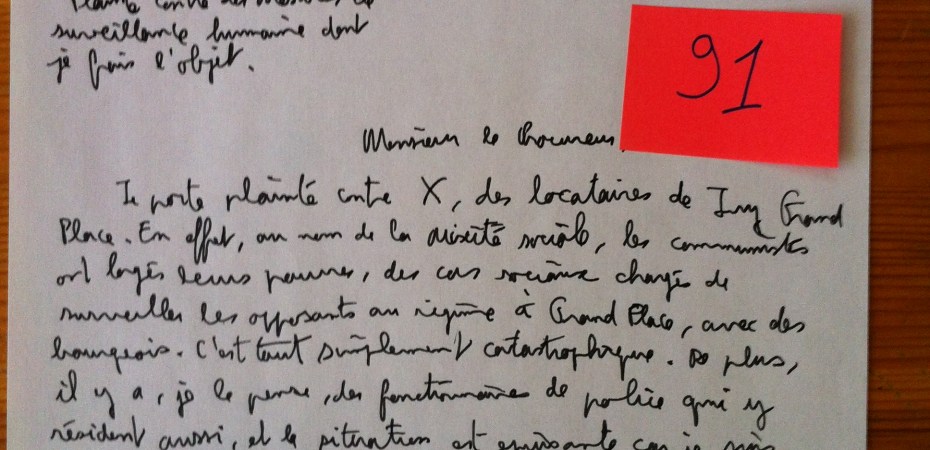 Plainte contre des mesures de
surveillance humaine dont
je fais l'objet.
91
Monsieur le Procureur,
Je porte plainte contre X, des locataires de Ivry Grand
Place. En effet, au nom de la mixité sociale, les communistes
ont logés leurs pauvres, des cas sociaux chargés de
surveiller les opposants au régime à Grand Place, avec des
bourgeois. C'est tout simplement catastrophique. De plus,
il y a, je le pense, des fonctionnaires de police qui y
résident aussi, et la situation est car je suis